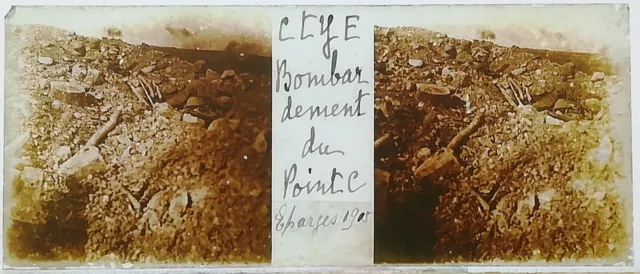 C t y E
Bombar
dement
du
Point C
Eparges 1915